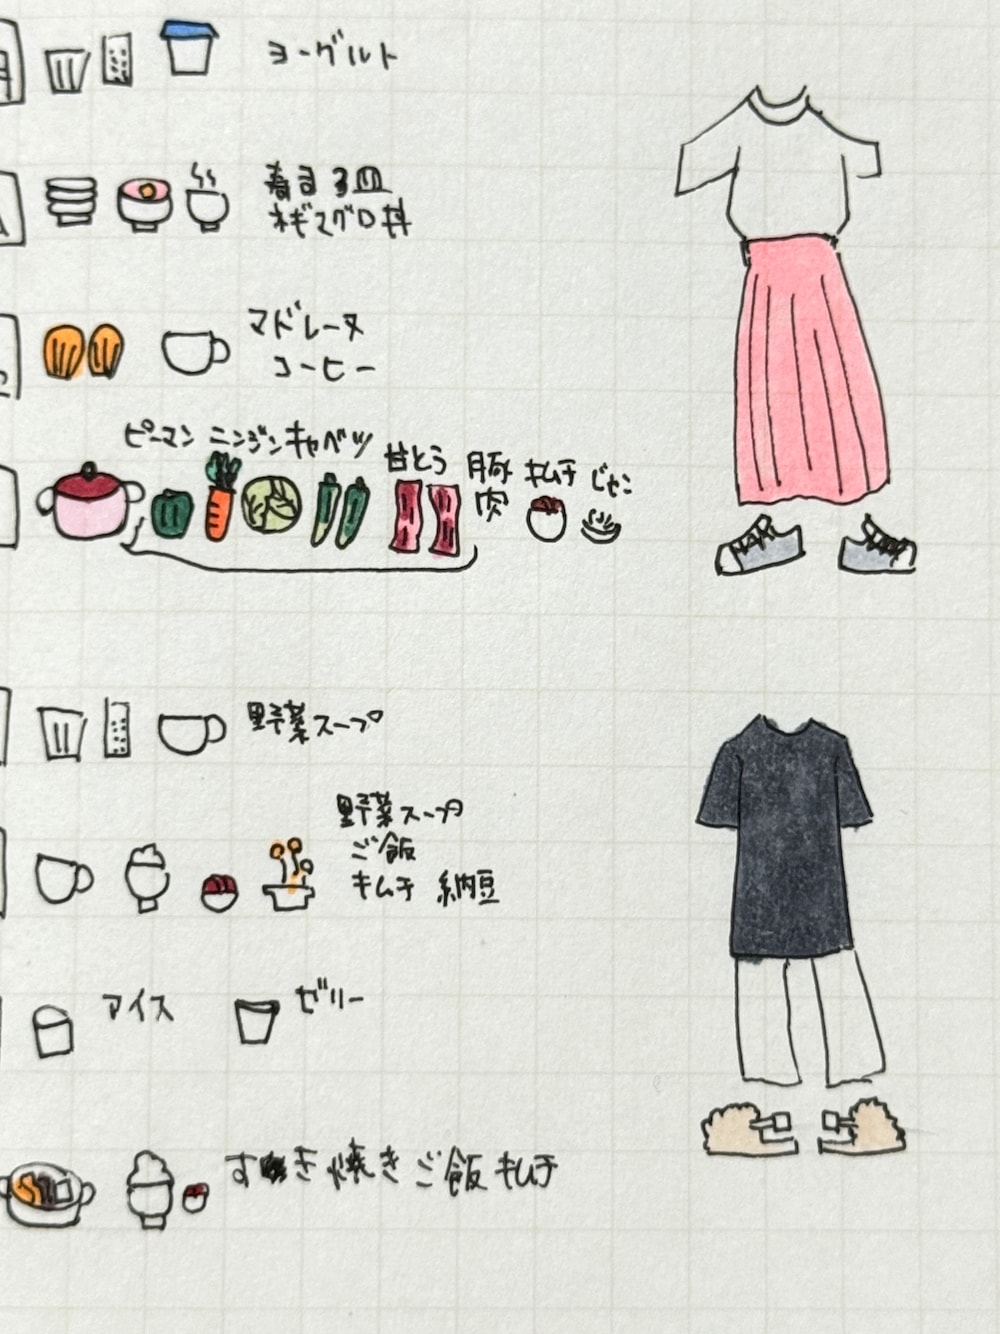 ヨーグルト
寿司3皿
ネギマグロ丼
マドレーヌ
コーヒー
ピーマン ニンジン キャベツ
甘とう 豚肉 キムチ じゃこ
野菜スープ
野菜スープ
ご飯
キムチ 納豆
アイス ゼリー
すき焼き ご飯 キムチ